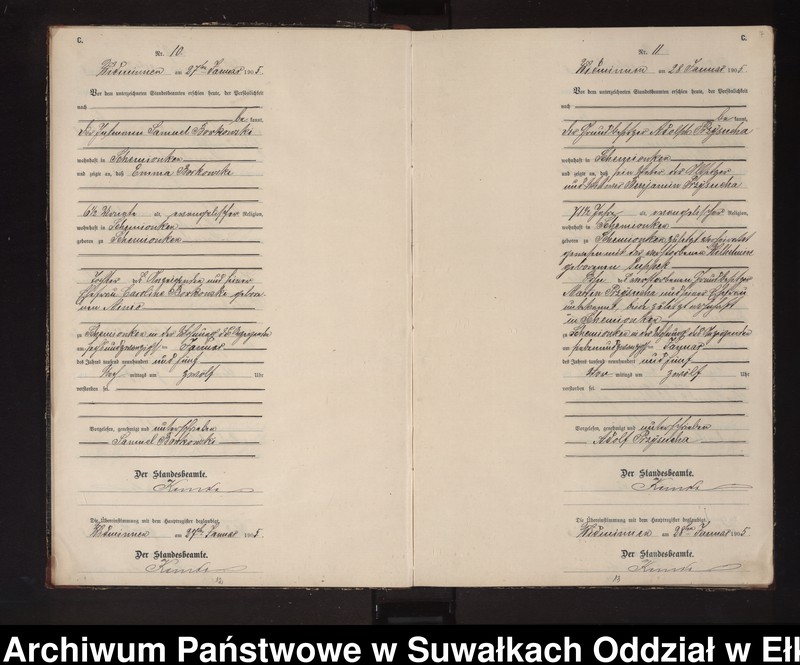 C.
Nr. 10.
Widminnen am 27ten Januar 1905.
Vor dem unterzeichneten Standesbeamten erschien heute, der Persönlichkeit
nach
be kannt,
der Samuel Borkowski
wohnhaft in Schemionken
und zeigte an, daß Emma Borkowski
6½ alt, evangelischer Religion,
wohnhaft in Schemionken
geboren zu Schemionken
Tochter des Anzeigenden und seiner
Ehefrau Caroline Borkowski gebore-
nen
zu Schemionken in der Wohnung des Anzeigenden
am sechsundzwanzigsten Januar
des Jahres tausend neunhundert und fünf
Nach mittags um zwölf Uhr
verstorben sei.
Vorgelesen, genehmigt und unterschrieben
Samuel Borkowski
Der Standesbeamte.
Die Übereinstimmung mit dem Hauptregister beglaubigt
Widminnen am 27ten Januar 1905.
Der Standesbeamte.
12
C.
Nr. 11.
Widminnen am 28 Januar 1905.
Vor dem unterzeichneten Standesbeamten erschien heute, der Persönlichkeit
nach
be kannt,
der Grundbesitzer Adolph
wohnhaft in Schemionken
und zeigte an, daß sein Vater der
und Benjamin
71½ Jahre alt, evangelischer Religion,
wohnhaft in Schemionken
geboren zu Schemionken zuletzt verheiratet
gewesen mit der verstorbenen Wilhelmine
geborenen
Sohn des verstorbenen Grundbesitzer
Martin und seiner Ehefrau
unbekannt, beide zuletzt wohnhaft
in Schemionken
zu Schemionken in der Wohnung des Anzeigenden
am siebenundzwanzigsten Januar
des Jahres tausend neunhundert und fünf
Vor mittags um zwölf Uhr
verstorben sei.
Vorgelesen, genehmigt und unterschrieben
Adolf
Der Standesbeamte.
Die Übereinstimmung mit dem Hauptregister beglaubigt
Widminnen am 28ten Januar 1905.
Der Standesbeamte.
13
Archiwum Państwowe w Suwałkach Oddział w Eł